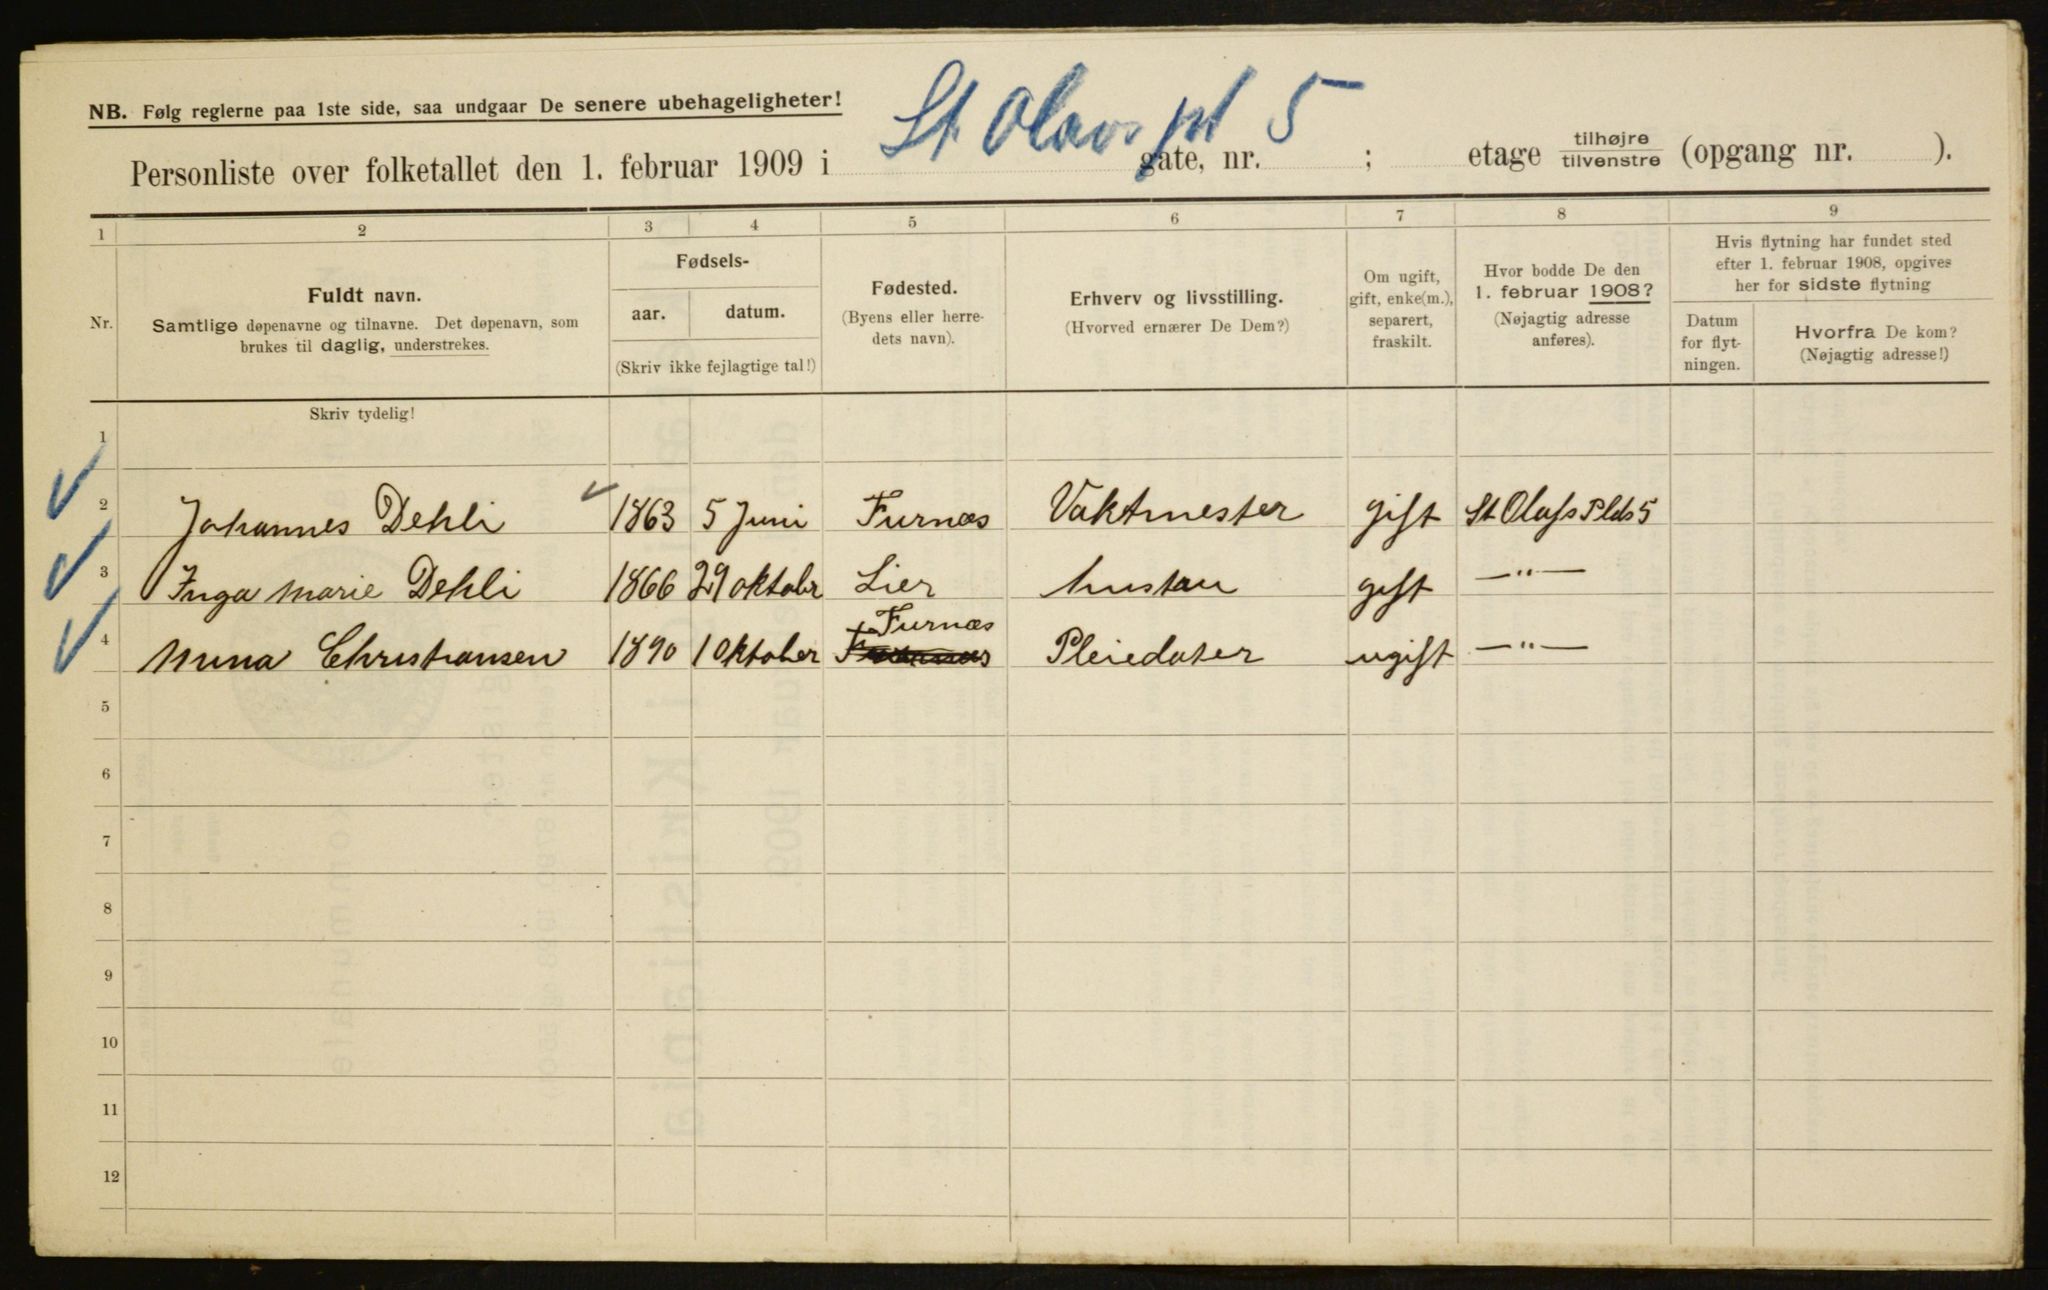 NB. Følg reglerne paa 1ste side, saa undgaar De senere ubehageligheter!
St. Olavs pl 5
Personliste over folketallet den 1. februar 1909 i gate, nr. ; etage tilhøjre tilvenstre (opgang nr. ).
1 2 3 4 5 6 7 8 9
Nr.
Fuldt navn.
Samtlige døpenavne og tilnavne. Det døpenavn, som
brukes til daglig, understrekes.
Fødsels-
aar. datum.
(Skriv ikke fejlagtige tal!)
Fødested.
(Byens eller herre-
dets navn).
Erhverv og livsstilling.
(Hvorved ernærer De Dem?)
Om ugift,
gift, enke(m.),
separert,
fraskilt.
Hvor bodde De den
1. februar 1908?
(Nøjagtig adresse
anføres).
Hvis flytning har fundet sted
efter 1. februar 1908, opgives
her for sidste flytning
Datum
for flyt-
ningen.
Hvorfra De kom?
(Nøjagtig adresse!)
Skriv tydelig!
1
2 Johannes Dehli 1863 5 Juni Furnæs Vaktmester gift St Olafs Plds 5
3 Inga Marie Dehli 1866 29 oktobr Lier hustru gift —"—
Furnæs
4 Anna Christiansen 1890 1 Oktober Pleiedater ugift —"—
5
6
7
8
9
10
11
12